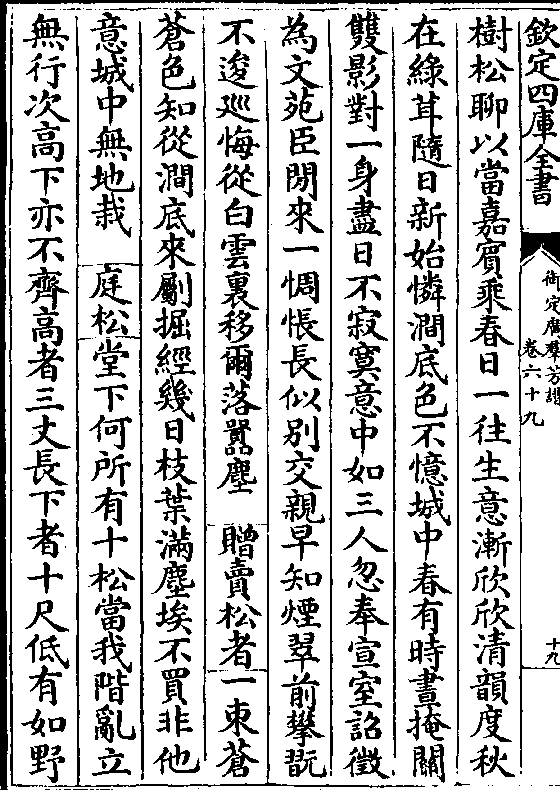 欽定四庫全書
御定廣羣芳譜
卷六十九
十九
樹松聊以當嘉賓乘春日一往生意漸欣欣清韻度秋
在綠茸隨日新始憐澗底色不憶城中春有時晝掩關
雙影對一身盡日不寂寞意中如三人忽奉宣室詔徵
為文苑臣閒來一惆悵長似別交親早知煙翠前攀翫
不逡巡悔從白雲裏移爾落囂塵　贈賣松者一束蒼
蒼色知從澗底來劚掘經幾日枝葉滿塵埃不買非他
意城中無地栽　庭松堂下何所有十松當我階亂立
無行次高下亦不齊高者三丈長下者十尺低有如野